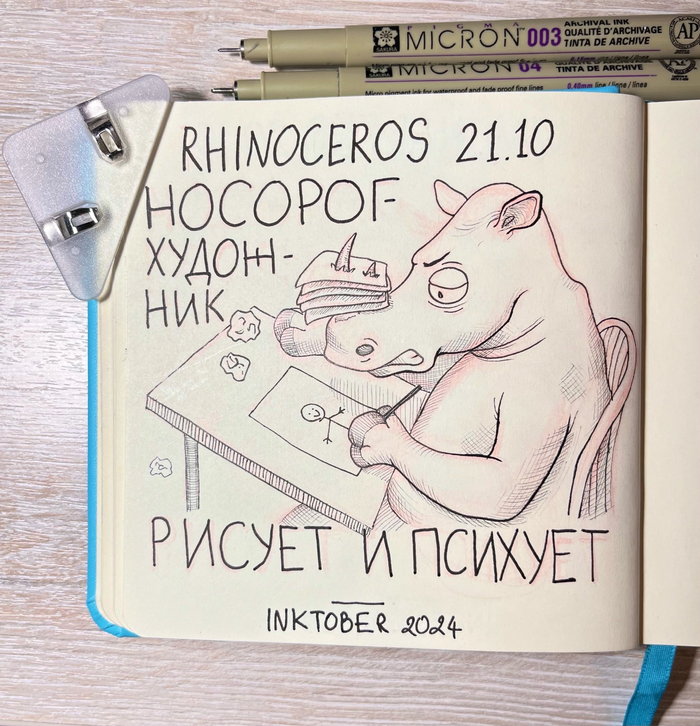 PIGMA
MICRON 003
ARCHIVAL INK
QUALITÉ D'ARCHIVAGE
TINTA DE ARCHIVE
AP
SAKURA
MICRON 04
TINTA DE ARCHIVE
Micro pigment ink for waterproof and fade proof fine lines
0.40mm line / ligne / línea
RHINOCEROS 21.10
НОСОРОГ-
ХУДОЖ-
НИК
РИСУЕТ И ПСИХУЕТ
INKTOBER 2024